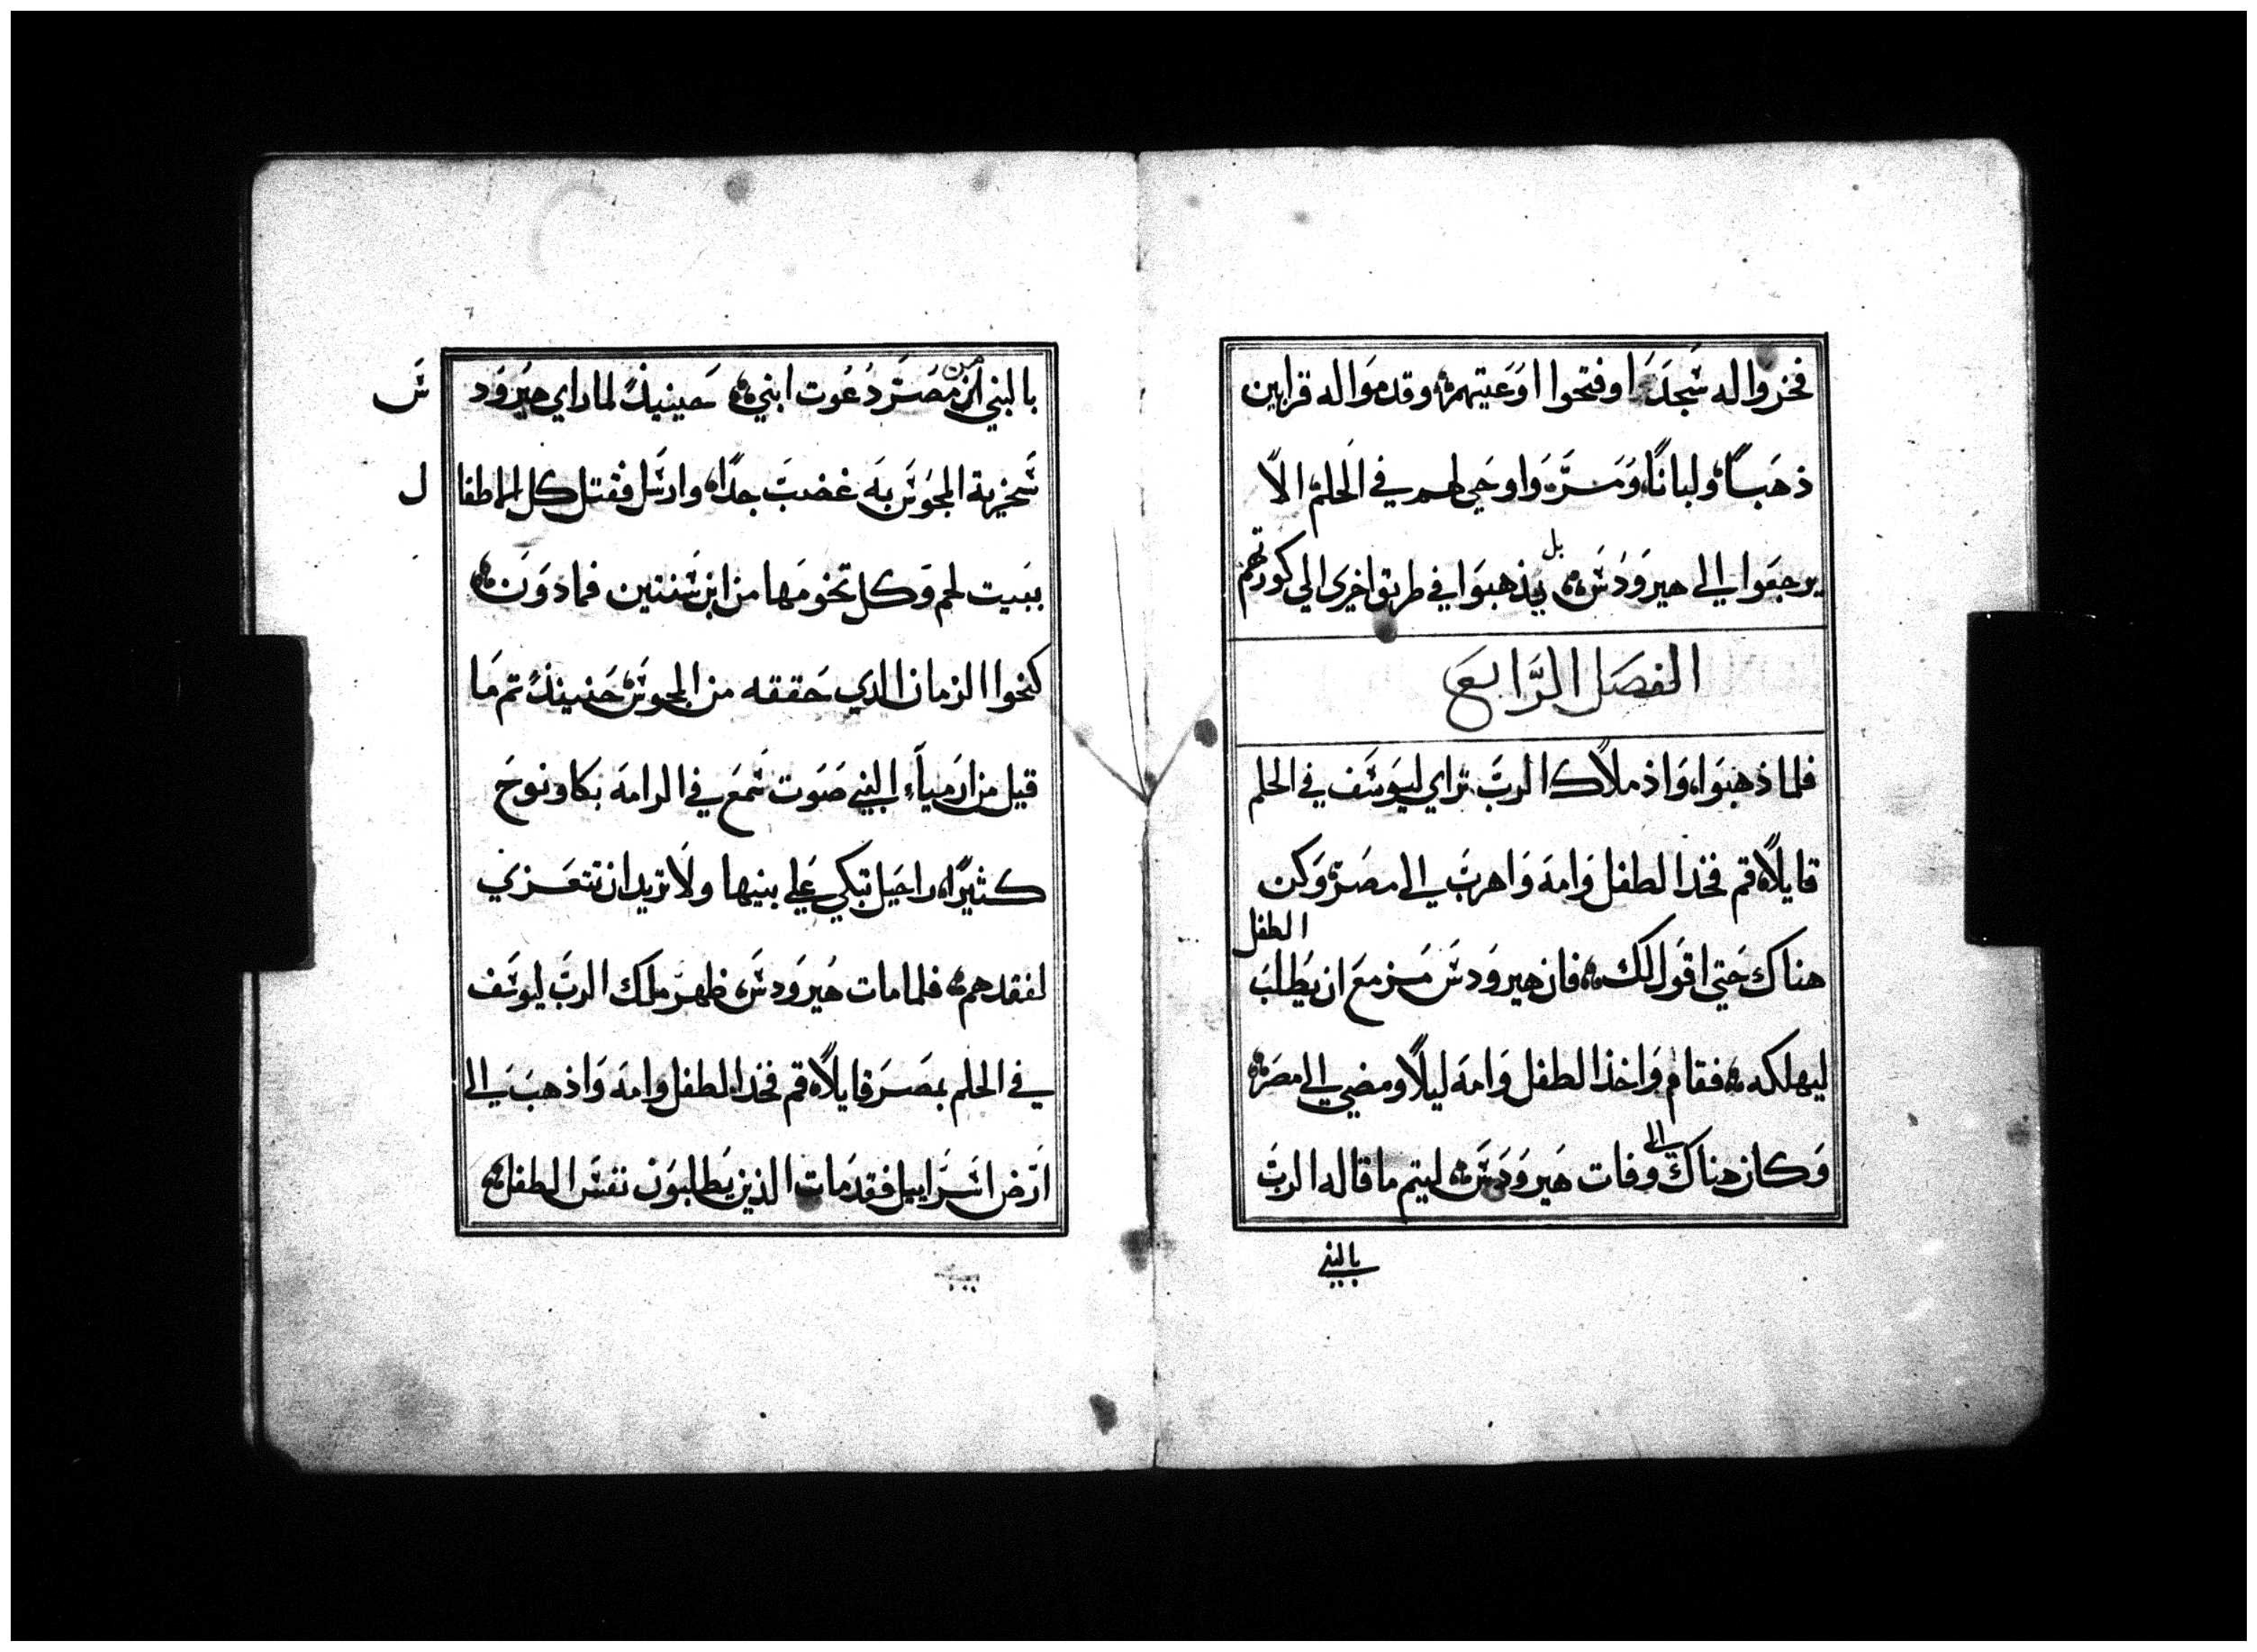 فخروا له سجدَا وفتحوا اوعيتهم وقدموا له قرابين
ذهبًا ولبانًا ومرّة واوحي لهم في الحلم الاّ
يرجعوا الي هيرودس بل يذهبوا في طريق اخري الي كورتهم
الفصل الرّابع
فلما ذهبوا واذ ملاك الرب تراي ليوسف في الحلم
قايلاً قم فخذ الطفل وامه واهرب الي مصر وكن
هناك حتي اقول لك فان هيرودس مزمع ان يطلب الطفل
ليهلكه فقام واخذ الطفل وامه ليلاً ومضي الي مصر
وكان هناك الي وفات هيرودس ليتم ما قاله الرب
بالنبي
بالنبي من مصر دعوت ابني حينيذً لما راي هيرود س
سخرية المجوس به غضب جدًا وارسل فقتل كل الاطفا ل
ببيت لحم وكل تخومها من ابن سنتين فما دون
كنحوا الزمان الدي حققه من المجوس حنيىذً تم ما
قيل من ارمياء النبي صوت سمع في الرامه بكا ونوح
كثيرًا راحيل تبكي علي بنيها ولا تريد ان تتعزي
لفقدهم فلما مات هيرودس ظهر ملك الرب ليوسف
في الحلم بمصر قايلاً قم فخذ الطفل وامه واذهب الي
ارض اسراييل فقد مات الذين يطلبون نفس الطفل